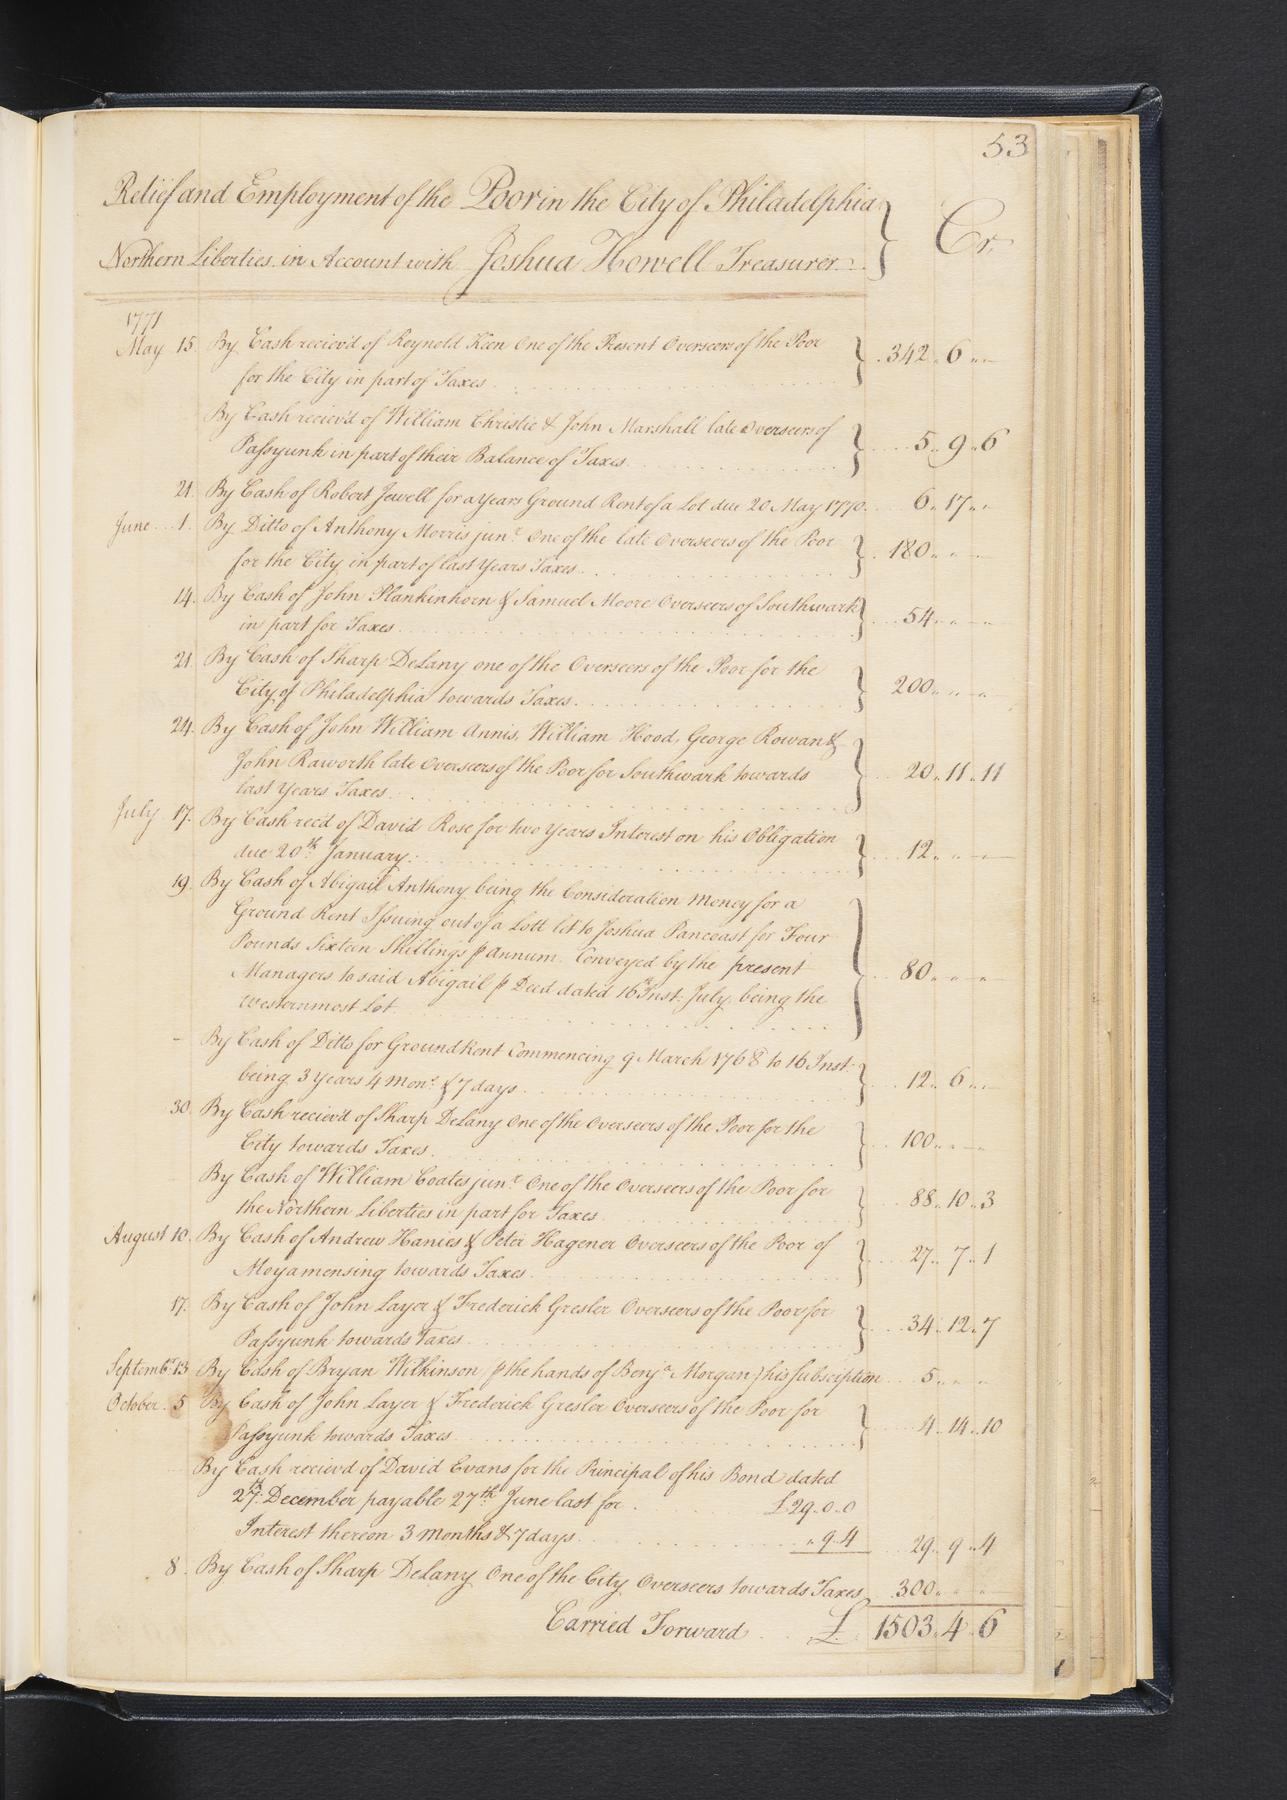 53
Relief and Employment of the Poor in the City of Philadelphia } Cr.
Northern Liberties in Account with Joshua Howell Treasurer
1771
May 15. By Cash reciev'd of Reynold Keen One of the Present Overseers of the Poor
for the City in part of Taxes } 342 " 6 " —
By Cash reciev'd of William Christie & John Marshall late Overseers of
Passyunk in part of their Balance of Taxes } 5 " 9 " 6
21. By Cash of Robert Jewell for a years Ground Rent of a Lot due 20 May 1770. 6 " 17 " "
June 1. By Ditto of Anthony Morris junr. One of the late Overseers of the Poor
for the City in part of last Years Taxes } 180 " " —
14. By Cash of John Plankinhorn & Samuel Moore Overseers of Southwark
in part for Taxes } 54 " — " —
21. By Cash of Sharp DeLany one of the Overseers of the Poor for the
City of Philadelphia towards Taxes } 200 " " —
24. By Cash of John William Annis, William Hood, George Rowan &
John Raworth late Overseers of the Poor for Southwark towards
last Years Taxes } 20 " 11 " 11
July 17. By Cash rec'd of David Rose for two Years Interest on his Obligation
due 20th January: } 12 " " —
19. By Cash of Abigail Anthony being the Consideration Money for a
Ground Rent Issuing out of a Lott let to Joshua Pancoast for Four
Pounds Sixteen Shillings p annum. Conveyed by the present
Managers to said Abigail p Deed dated 16 Inst: July, being the
westernmost Lot } 80 " " —
— By Cash of Ditto for Ground Rent Commencing 9 March 1768 to 16 Inst.
being 3 Years 4 Mons. & 7 days } 12 " 6 " —
30. By Cash reciev'd of Sharp DeLany One of the Overseers of the Poor for the
City towards Taxes } 100 " " —
By Cash of William Coates junr. One of the Overseers of the Poor for
the Northern Liberties in part for Taxes } 88 " 10 " 3
August 10. By Cash of Andrew Hanies & Peter Hagener Overseers of the Poor of
Moyamensing towards Taxes } 27 " 7 " 1
17. By Cash of John Layer & Frederick Gresler Overseers of the Poor for
Passyunk towards Taxes } 34 " 12 " 7
Septembr. 13 By Cash of Bryan Wilkinson (p the hands of Benja. Morgan) his subsciption 5 " " "
October. 5 By Cash of John Layer & Frederick Gresler Overseers of the Poor for
Passyunk towards Taxes } 4 " 14 " 10
By Cash reciev'd of David Evans for the Principal of his Bond dated
27th December payable 27th June last for £29.0.0
Interest thereon 3 Months & 7 days " 9.4 29 " 9 " 4
8. By Cash of Sharp DeLany One of the City Overseers towards Taxes 300 " " "
Carried Forward £ 1503 " 4 " 6